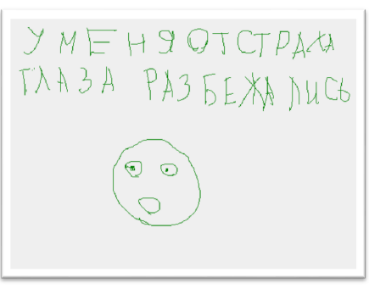 У МЕНЯ ОТ СТРАХА
ГЛАЗА РАЗБЕЖАЛИСЬ